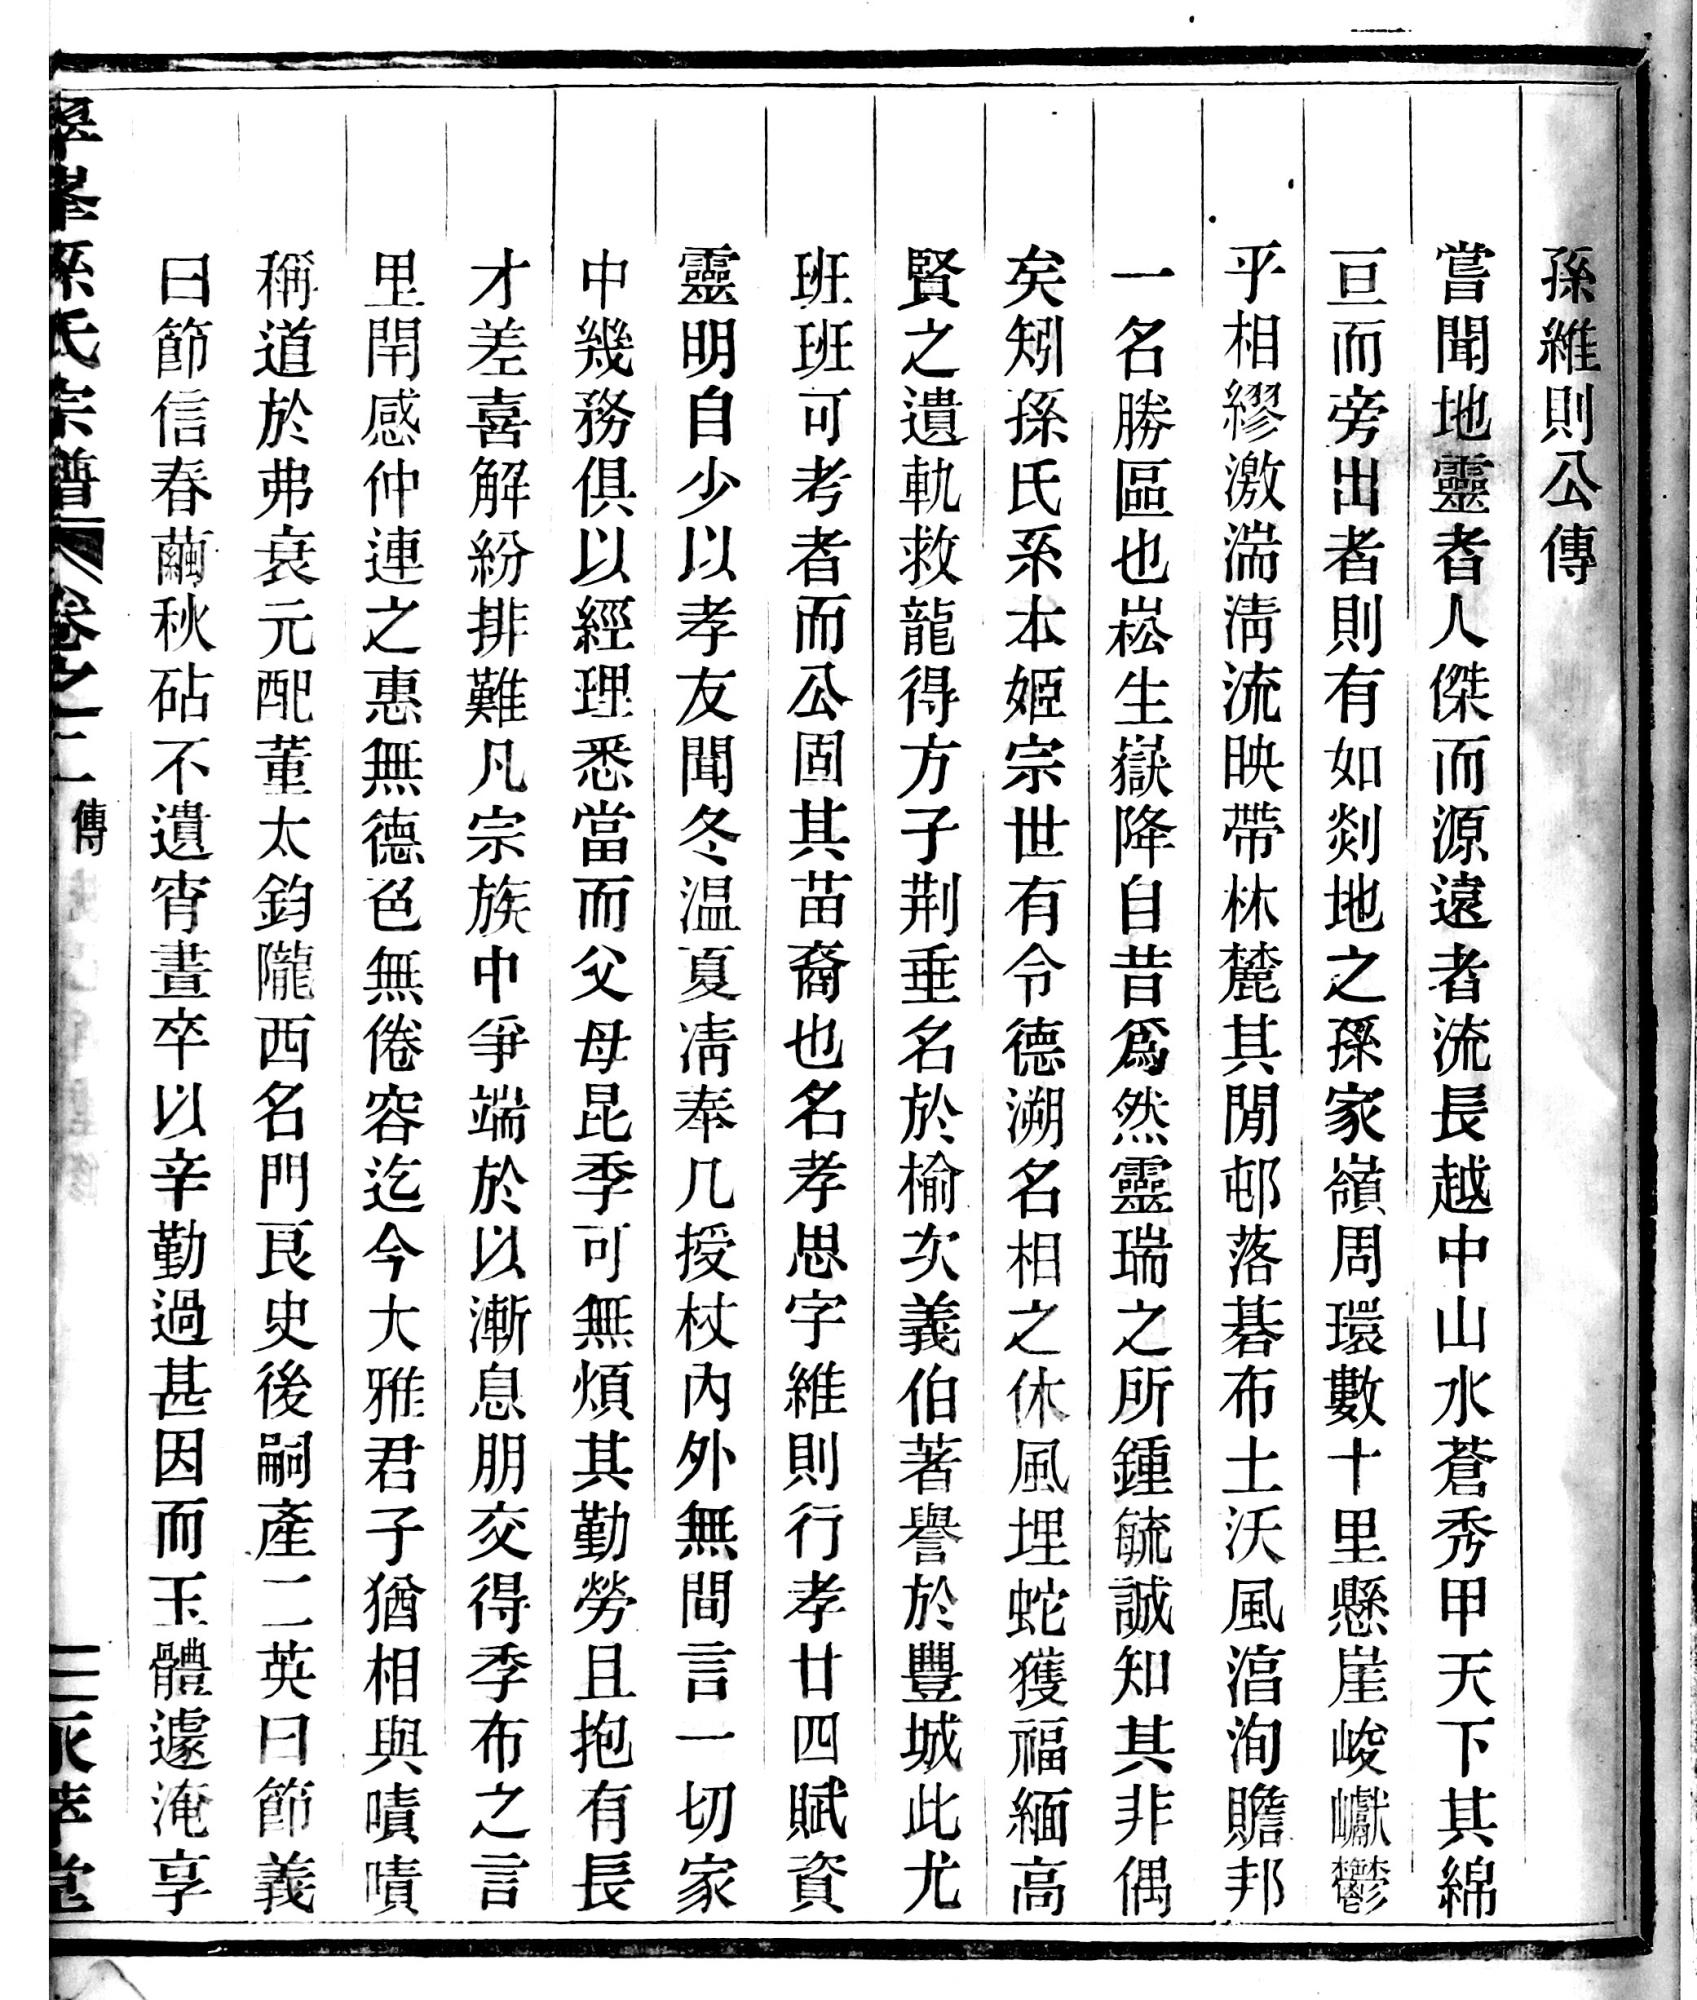 孫維則公傳
嘗聞地靈者人傑而源遠者流長越中山水蒼秀甲天下其綿
亘而旁出者則有如剡地之孫家嶺周環數十里懸崖峻巘鬱
乎相繆激湍淸流映帶林麓其閒邨落碁布土沃風湻洵贍邦
一名勝區也崧生嶽降自昔爲然靈瑞之所鍾毓誠知其非偶
矣矧孫氏系本姬宗世有令德溯名相之休風埋蛇獲福緬高
賢之遺軌救龍得方子荆垂名於榆次義伯著譽於豐城此尤
班班可考者而公固其苗裔也名孝思字維則行孝廿四賦資
靈明自少以孝友聞冬温夏凊奉几授杖內外無間言一切家
中幾務俱以經理悉當而父母昆季可無煩其勤勞且抱有長
才差喜解紛排難凡宗族中爭端於以漸息朋交得季布之言
里閈感仲連之惠無德色無倦容迄今大雅君子猶相與嘖嘖
稱道於弗衰元配董太鈞隴西名門艮史後嗣產二英曰節義
曰節信春繭秋砧不遺宵晝卒以辛勤過甚因而玉體遽淹享
孫氏宗譜 卷之二 傳 二 永萃堂